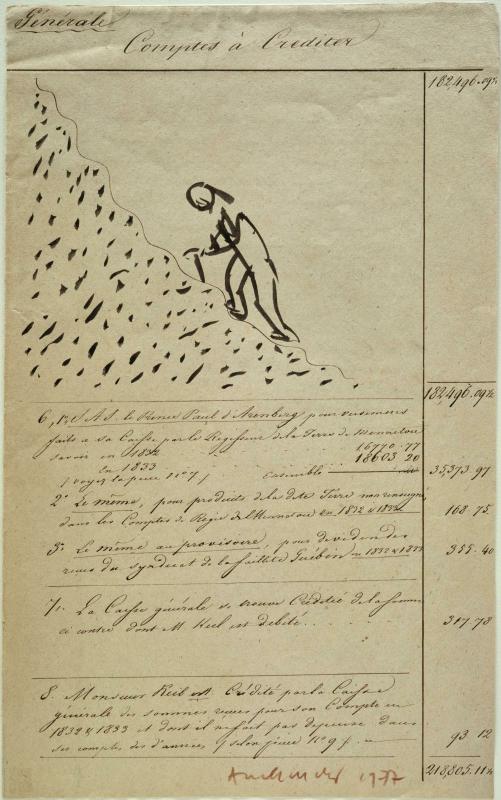 Générale
Comptes à Créditer
182,496.09½
182,496.09½
6, 1º S.A.S. le Prince Paul d'Arenberg pour versemens
faits à sa Caisse par le Régisseur de la Terre de
savoir en 1832 16770.77
en 1833 18603 20
(voyez la pièce nº 7) ensemble 35,373.97
2º Le même, pour produits de la dite Terre non renseignés
dans les Comptes de Régie en 1832 & 1833 168 75
3º Le même au provisoire, pour dividendes
reçus du syndicat de la faillite en 1832 & 1833 355.40
7. La Caisse générale se trouve Créditée de la somme
ci contre dont M. est débité . . . 317.78
8. Monsieur est Crédité par la Caisse
générale des sommes reçues pour son Compte en
1832 & 1833 et dont il n'a fait pas dans
ses comptes des d. années (selon pièce Nº 9). 93 12
218,805.11½
1977